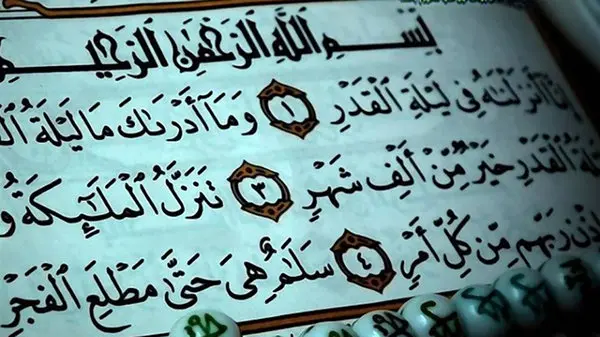 بِسْمِ ٱللَّهِ ٱلرَّحْمَٰنِ ٱلرَّحِيمِ
إِنَّآ أَنزَلْنَٰهُ فِى لَيْلَةِ ٱلْقَدْرِ ١ وَمَآ أَدْرَىٰكَ مَا لَيْلَةُ
ٱلْقَدْرِ خَيْرٌ مِّنْ أَلْفِ شَهْرٍ ٣ تَنَزَّلُ ٱلْمَلَٰٓئِكَةُ وَ
إِذْنِ رَبِّهِم مِّن كُلِّ أَمْرٍ ٤ سَلَٰمٌ هِىَ حَتَّىٰ مَطْلَعِ ٱلْفَجْرِ